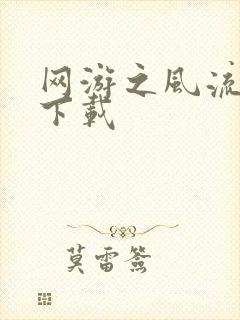 网游之风流
下载
莫雷签